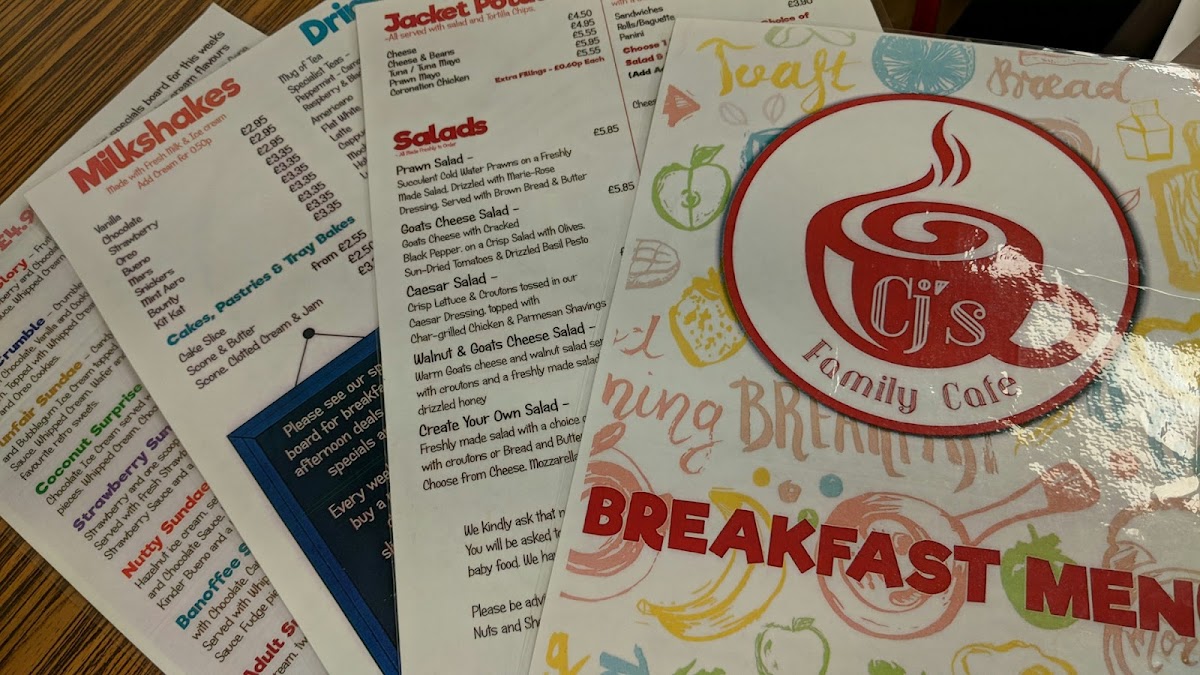 £4.9
specials board for this weeks
cream flavours
lory -
Crumble - Crumble
Chocolate, Vanilla and Cookie
Topped with Whipped Cream
and Oreo Cookies.
nfair Sundae - Candy
and Bubblegum Ice Cream topped
Sauce, Whipped Cream, Wafer and
favourite retro sweets.
Coconut Surprise
Chocolate Ice Cream served
pieces, Whipped Cream, Choc
Strawberry Sun
Strawberry and one scoop
Served with Fresh Strawb
Strawberry Sauce and a
Nutty Sundae
Hazelnut ice cream, se
and Chocolate Sauce,
Kinder Bueno and a
Banoffee S
with Chocolate, Ca
Served with Whip
Sauce, Fudge pie
Adult S
Milkshakes
Made with Fresh Milk & Ice cream
Add Cream for 0.50p
Vanilla £2.95
Chocolate £2.95
Strawberry £2.95
Oreo £3.35
Bueno £3.35
Minters £3.35
Snickers £3.35
Mint Aero £3.35
Bounty £3.35
Kit Kat
Cakes, Pastries & Tray Bakes
Cake Slice from £2.55
Scone & Butter £2.50
Scone, Clotted Cream & Jam £3.
Please see our sp
board for breakfa
afternoon deals
specials a
Every wee
buy a
Drin
Mug of Tea
Specialist Teas -
Peppermint - Cam
Raspberry & Blue
Americano
Flat White
Latte
Capp
Jacket Pota
...All served with salad and Tortilla Chips.
Cheese £4.50
Cheese & Beans £4.95
Tuna / Tuna Mayo £5.55
Prawn Mayo £5.95
Coronation Chicken £5.55
Extra Fillings - £0.60p Each
Salads
...All Made Freshly to Order!
Prawn Salad - £5.85
Succulent Cold Water Prawns on a Freshly
Made Salad, Drizzled with Marie-Rose
Dressing. Served with Brown Bread & Butter
Goats Cheese Salad - £5.85
Goats Cheese with Cracked
Black Pepper, on a Crisp Salad with Olives,
Sun-Dried Tomatoes & Drizzled Basil Pesto
Caesar Salad - £
Crisp Lettuce & Croutons tossed in our
Caesar Dressing, topped with
Char-grilled Chicken & Parmesan Shavings
Walnut & Goats Cheese Salad -
Warm Goats cheese and walnut salad ser
with croutons and a freshly made salad
drizzled honey
Create Your Own Salad -
Freshly made salad with a choice o
with croutons or Bread and Butter
Choose from Cheese, Mozzarella
We Kindly ask that n
You will be asked to
baby food. We ha
Please be adv
Nuts and She
£3.90
Sandwiches
Rolls/Baguette
Panini
Choose 1
Salad &
(Add Ad
Choice of
Chees
Bread
ning BREAKFAST
Cj's
Family Cafe
BREAKFAST MEN